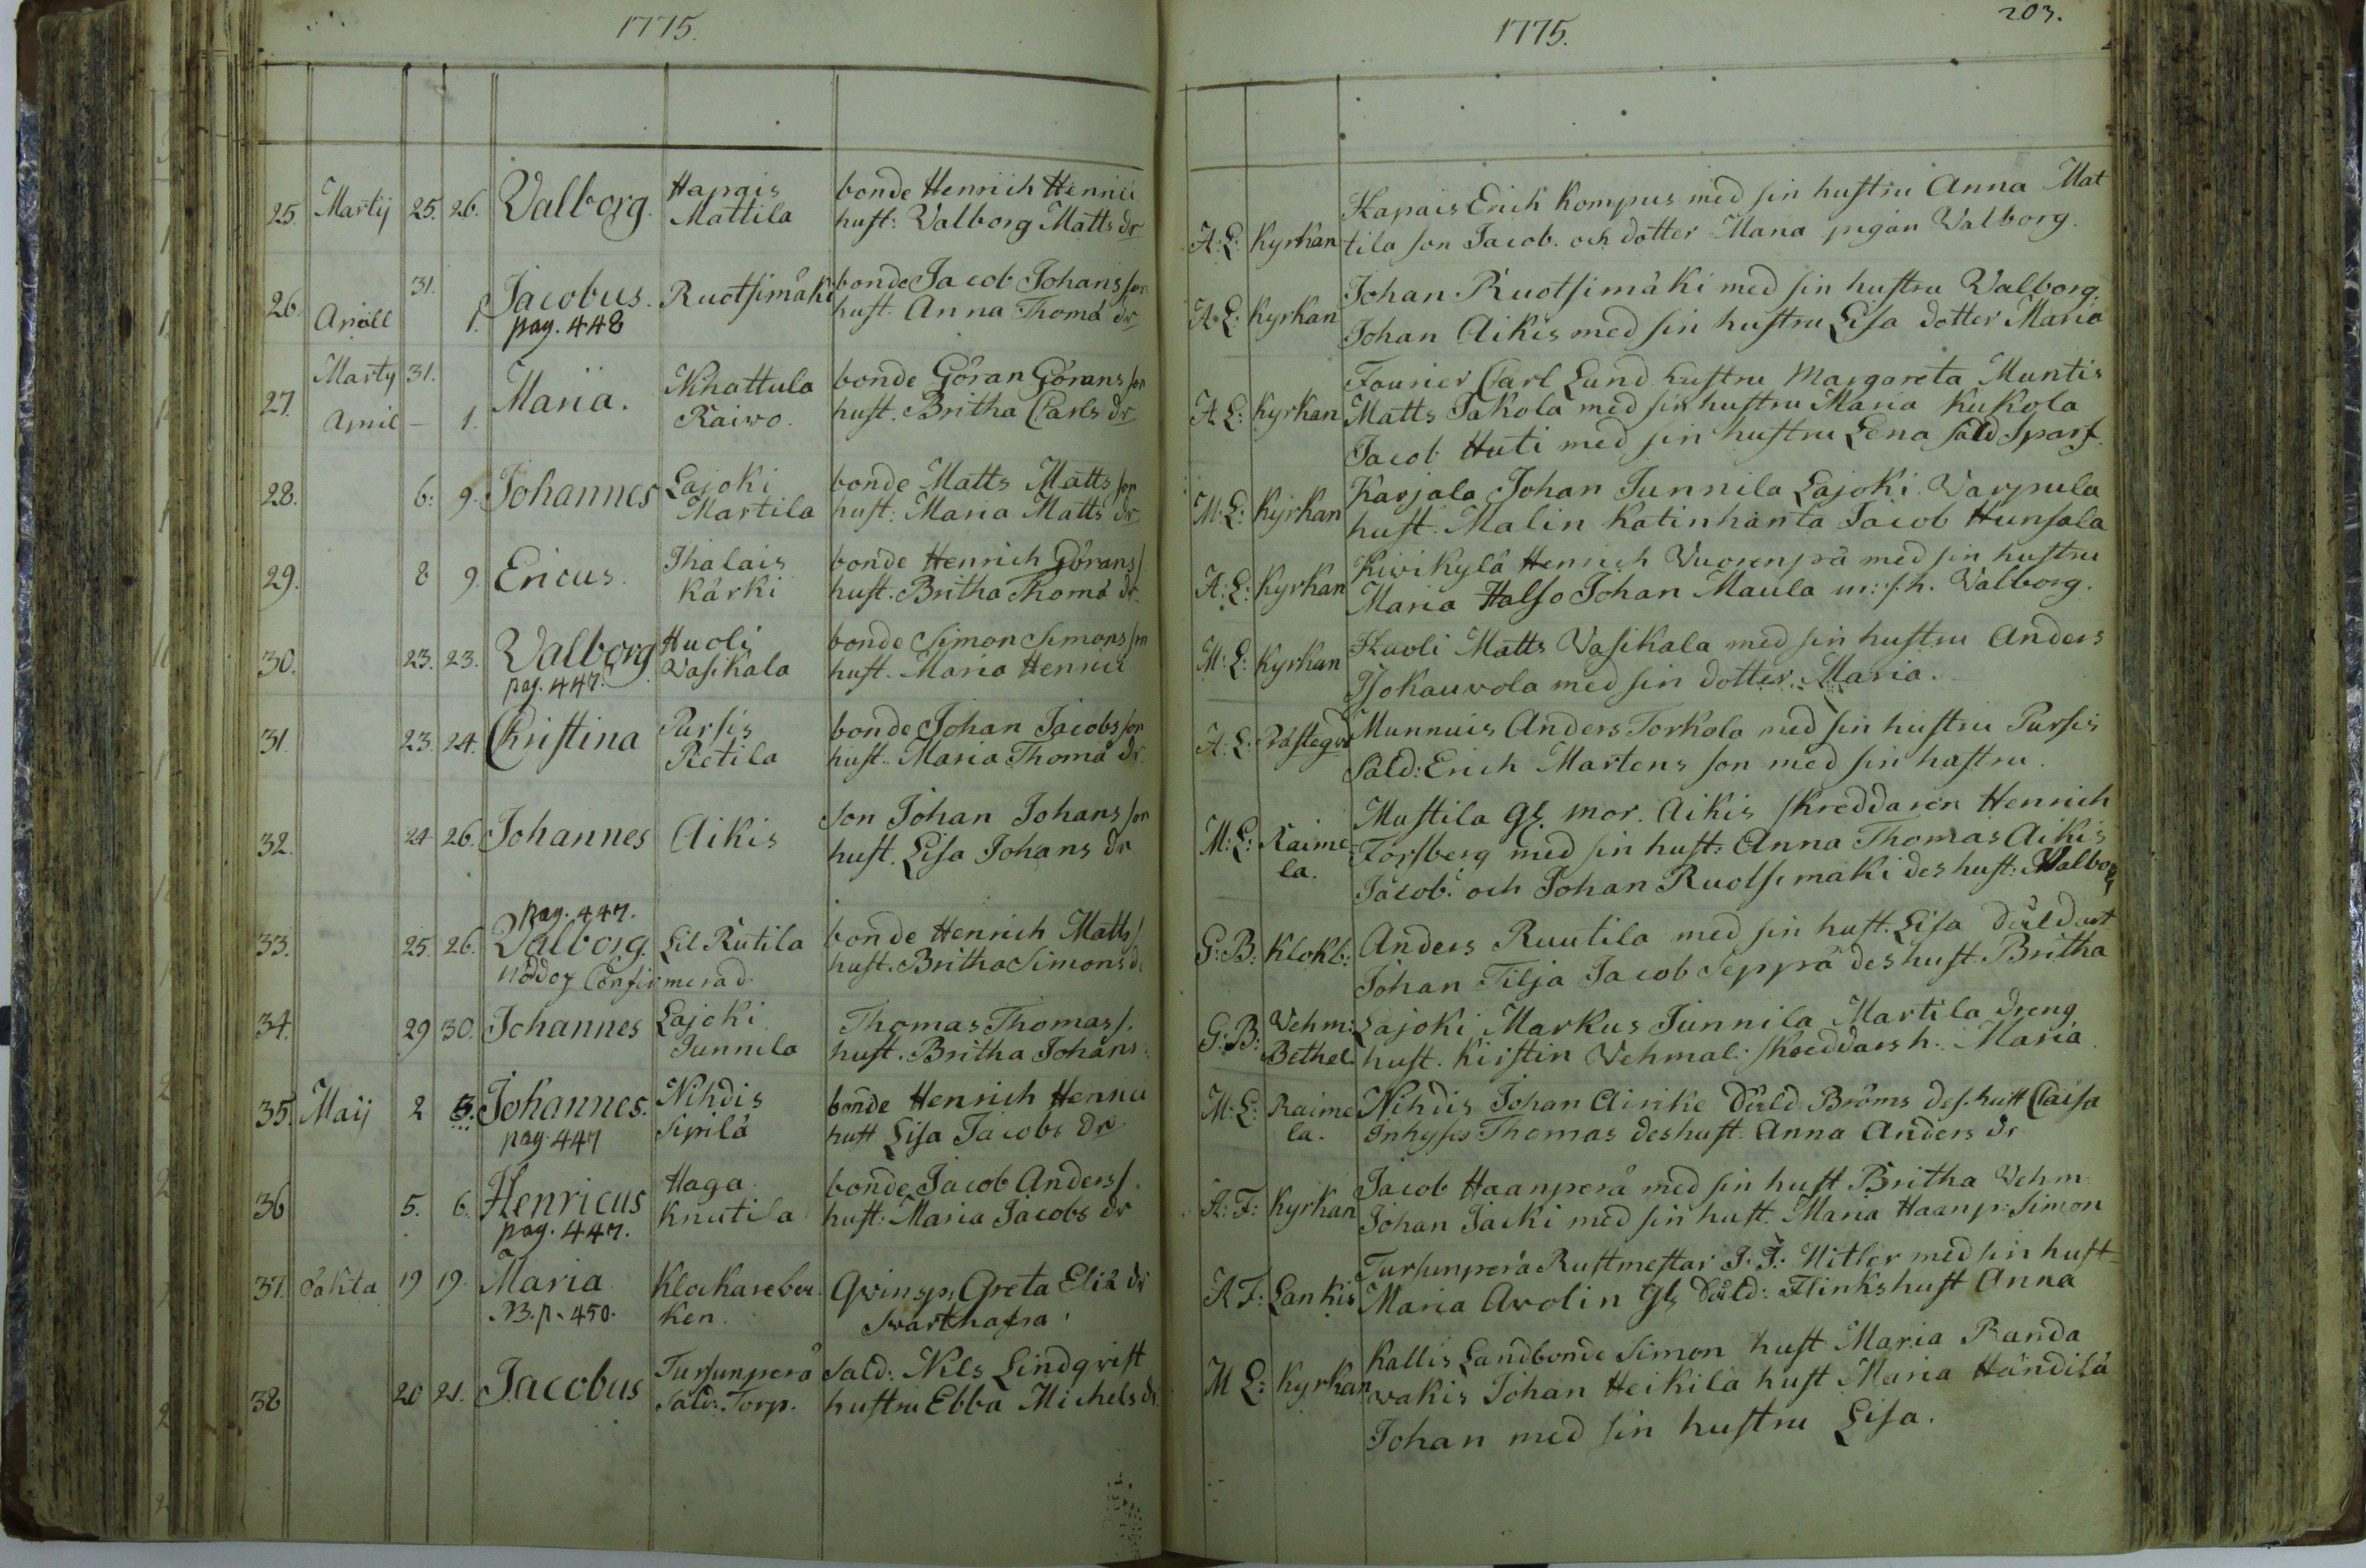 1775.
1775.
203.
25. Martij 25. 26. Valborg. Hapais bonde Henrich Henrici
Mattila hust: Valborg Matts dr
A: L: Kyrkan Hapais Erich Kompus med sin hustru Anna Mat
tila son Jacob. och dotter Maria pigan Valborg.
26 31. Jacobus. Ruotsimäki bonde Jacob Johans son
Aprill 1. pag. 448 hust. Anna Thomä dr
A. L: Kyrkan Johan Ruotsimäki med sin hustru Valborg.
Johan Aikis med sin hustru Lisa dotter Maria
27. Marty 31. Maria. Nihattula bonde Göran Görans son
April – 1. Raivo. hust. Britha Carls dr
A: L: Kyrkan Fourier Carl Lund hustru Margareta Muntis
Matts Takola med sin hustru Maria Kukola
Jacob Huti med sin hustru Lena såld Sparf.
28. 6: 9. Johannes Lajoki bonde Matts Matts son
Martila hust: Maria Matts dr
M: L: Kyrkan Karjala Johan Junnila Lajoki Varpula
hust. Malin Katinhänta Jacob Hunsala
29. 8 9. Ericus. Ihalais bonde Henrich Görans s.
Kärki hust. Britha Thomä dr.
A: L: Kyrkan Kivikylä Henrich Vuorenpä med sin hustru
Maria Halso Johan Maula m: s. h. Valborg.
30. 23. 23. Valborg Huoli bonde Simon Simons son
pag. 447. Vasikala hust. Maria Henrici
M: L: Kyrkan Huoli Matts Vasikala med sin hustru Anders
Isokauvola med sin dotter Maria.
31. 23. 24. Christina Pursis bonde Johan Jacobs son
Retila hust. Maria Thomä dr.
A: L: Prästegår Munnuis Anders Torkola med sin hustru Pursis
Såld: Erich Martens son med sin hustru.
32. 24 26. Johannes Aikis Son Johan Johans son
hust. Lisa Johans dr
M: L: Raime Mustila gl. mor. Aikis skreddaren Henrich
la. Forsberg med sin hust: Anna Thomas Aikis
Jacob. och Johan Ruotsimäki des hust: Walborg
pag. 447.
33. 25. 26. Valborg. Lil Rutila bonde Henrich Matts s.
nöddop Confirmerad. hust. Britha Simons d.
G: B: Klokb: Anders Ruutila med sin hust. Lisa
Johan Tilja Jacob Seppä des hust. Britha
34. 29 30. Johannes Lajoki Thomas Thomas s.
Junnila hust. Britha Johans:
G: B: Vehm: Lajoki Markus Junnila Martila dreng
Bethel. hust. Kirstin Vehmal: skreddars h. Maria
35. Maij 2 3. Johannes. Nihdis bonde Henrich Henrici
pag. 447 Sipilä hust Lisa Jacobs dr
M: L: Raime Nihdis Johan Airike Såld. Bröms des. hust Caisa
la. inhyses Thomas des hust. Anna Anders dr
36 5. 6. Henricus Haga bonde Jacob Anders s.
pag. 447. Knutila hust: Maria Jacobs dr
A: F: Kyrkan Jacob Haanperä med sin hust Britha Vehm.
Johan Jaakki med sin hust. Maria Haanp: Simon
37. oäkta 19 19. Maria Klockarebou Qvinsp. Greta Eliä dr
NB. p. 450. ken. Svarthafra
A F: Lankis Tursunperä Rustmestar J. J: Hitler med sin hust-
Maria Avolin gl. Såld: Flinks hust Anna
38 20 21. Jacobus Tursunperä Sald: Nils Lindqvist
Sald: Torp. hustru Ebba Michels dr.
M L: Kyrkan Kallis Landbonde Simon hust Maria Randa
vakis Johan Heikilä hust Maria Händilä
Johan med sin hustru Lisa.